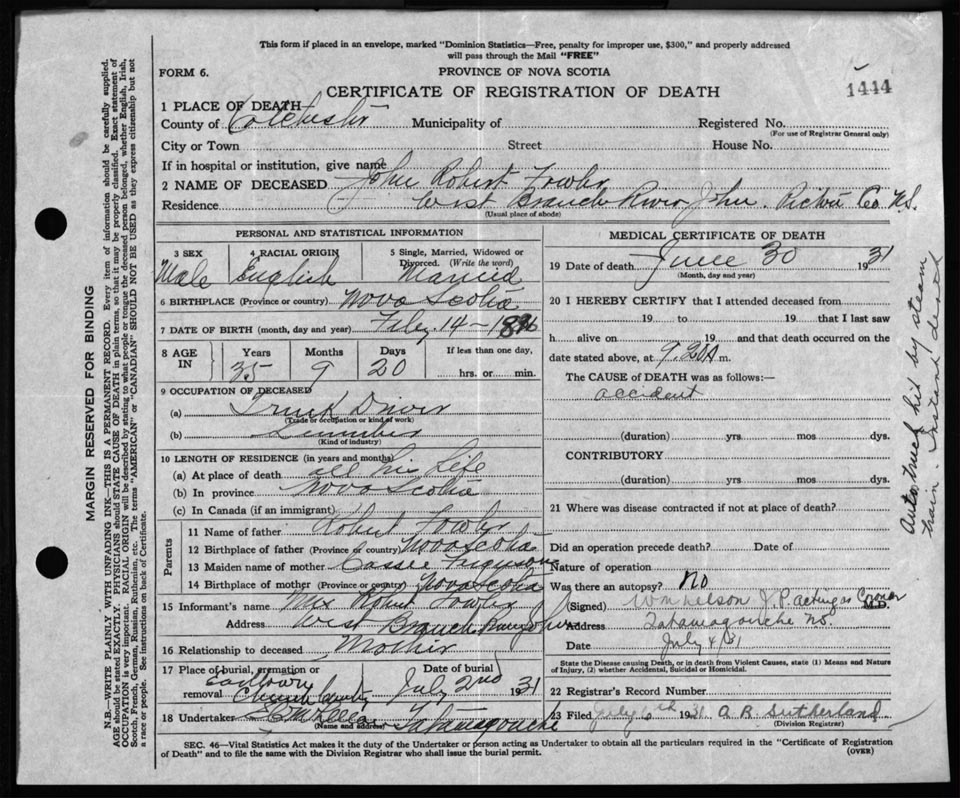 This form if placed in an envelope, marked "Dominion Statistics—Free, penalty for improper use, $300," and properly addressed
will pass through the Mail "FREE"
FORM 6.
PROVINCE OF NOVA SCOTIA
1444
CERTIFICATE OF REGISTRATION OF DEATH
1 PLACE OF DEATH—
County of Colchester Municipality of Registered No.
(For use of Registrar General only)
City or Town Street House No.
If in hospital or institution, give name
2 NAME OF DECEASED John Robert Fowler
Residence West Branch River John. Pictou Co N.S.
(Usual place of abode)
PERSONAL AND STATISTICAL INFORMATION
3 SEX 4 RACIAL ORIGIN 5 Single, Married, Widowed or
Divorced. (Write the word)
Male English Married
6 BIRTHPLACE (Province or country) Nova Scotia
7 DATE OF BIRTH (month, day and year) Feby. 14–1896
8 AGE IN Years Months Days If less than one day,
35 9 20 hrs. or min.
9 OCCUPATION OF DECEASED
(a) Truck Driver
(Trade or occupation or kind of work)
(b) Lumber
(Kind of industry)
10 LENGTH OF RESIDENCE (in years and months)
(a) At place of death all his Life
(b) In province Nova Scotia
(c) In Canada (if an immigrant)
Parents
11 Name of father Robert Fowler
12 Birthplace of father (Province or country) Nova Scotia
13 Maiden name of mother Cassie Ferguson
14 Birthplace of mother (Province or country) Nova Scotia
15 Informant's name Mrs Robert Fowler
Address West Branch River John
16 Relationship to deceased Mother
17 Place of burial, cremation or removal Date of burial
Church July 2nd 1931
18 Undertaker Tatamagouche
(Name and address)
MEDICAL CERTIFICATE OF DEATH
19 Date of death June 30 1931
(Month, day and year)
20 I HEREBY CERTIFY that I attended deceased from
19 to 19 that I last saw
h alive on 19 and that death occurred on the
date stated above, at 9.20A m.
The CAUSE of DEATH was as follows:—
accident
(duration) yrs. mos dys.
CONTRIBUTORY
(duration) yrs. mos dys.
21 Where was disease contracted if not at place of death?
Did an operation precede death? Date of
Nature of operation
Was there an autopsy? No
(Signed) Wm Nelson J.P. acting as Coroner M.D.
Address Tatamagouche NS.
Date July 4/31
State the Disease causing Death, or in death from Violent Causes, state (1) Means and Nature
of Injury, (2) whether Accidental, Suicidal or Homicidal.
22 Registrar's Record Number
23 Filed July 6th 1931 A. R. Sutherland
(Division Registrar)
SEC. 46—Vital Statistics Act makes it the duty of the Undertaker or person acting as Undertaker to obtain all the particulars required in the "Certificate of Registration
of Death" and to file the same with the Division Registrar who shall issue the burial permit.
(OVER)
Auto truck hit by steam
train. Instant death
MARGIN RESERVED FOR BINDING
N.B.—WRITE PLAINLY WITH UNFADING INK—THIS IS A PERMANENT RECORD. Every item of information should be carefully supplied.
AGE should be stated EXACTLY. PHYSICIANS should STATE CAUSE OF DEATH in plain terms, so that it may be properly classified. Exact statement of
OCCUPATION is very important. RACIAL ORIGIN will be described by stating to what people or tongue the deceased person belonged, whether English, Irish,
Scotch, French, German, Russian, Ruthenian, etc. The terms "AMERICAN" or "CANADIAN" SHOULD NOT BE USED as they express citizenship but not
a race or people. See instructions on back of Certificate.